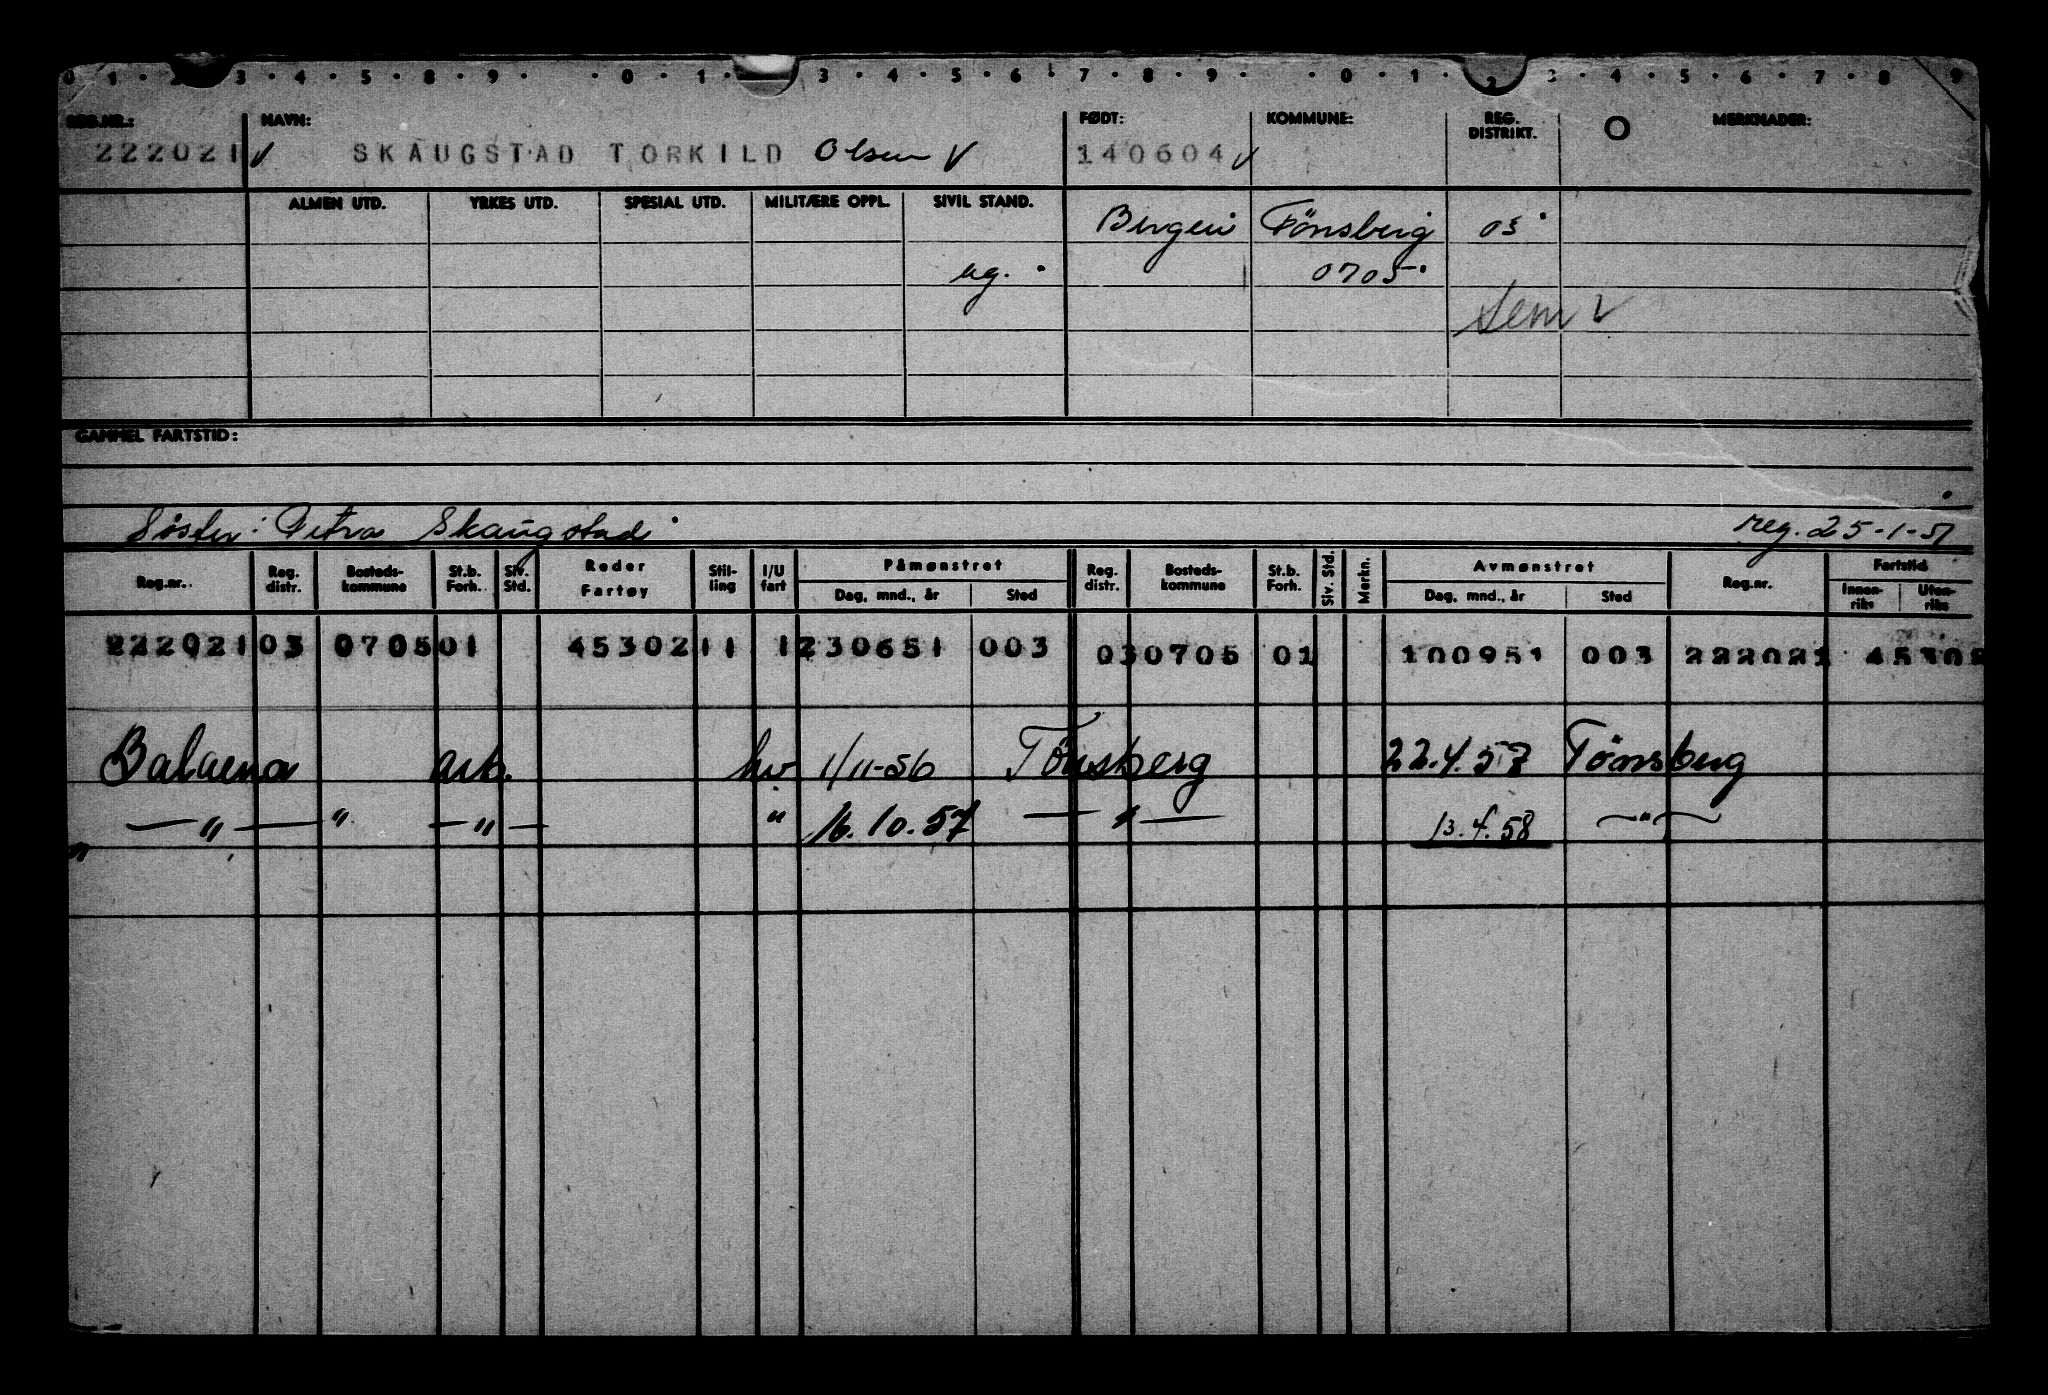 0 · 1 · 2 3 · 4 · 5 · 8 · 9 · · 0 · 1 · 3 · 4 · 5 · 6 · 7 · 8 · 9 · · 0 · 1 · 2 3 · 4 · 5 · 6 · 7 · 8 9
REG.NR.: NAVN: FØDT: KOMMUNE: REG. DISTRIKT. O MERKNADER:
222021 V SKAUGSTAD TORKILD Olsen V 140604 V
ALMEN UTD. YRKES UTD. SPESIAL UTD. MILITÆRE OPPL. SIVIL STAND.
Bergen Tönsberg 03
ug. 0705
Sem V
GAMMEL FARTSTID:
Søster: Petra Skaugstad reg. 25-1-51
Reg.nr. Reg. distr. Bosteds-kommune St.b. Forh. Siv. Std. Reder Fartøy Stil-ling I/U fart Påmønstret Reg. distr. Bosteds-kommune St.b. Forh. Siv. Std. Merkn. Avmønstret Reg.nr. Fartstid
Dag, mnd., år Sted Dag, mnd., år Sted Innen-riks Uten-riks
222021 03 0705 01 45302 11 1 230651 003 03 0705 01 100951 003 222021 45302
Balaena arb. hv 1/11-56 Tönsberg 22.4.57 Tönsberg
— " — " — " — " 16.10.57 — " — 13.4.58 — " —